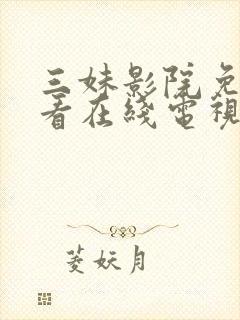 三妹影院免
看在线電視
菱妖月